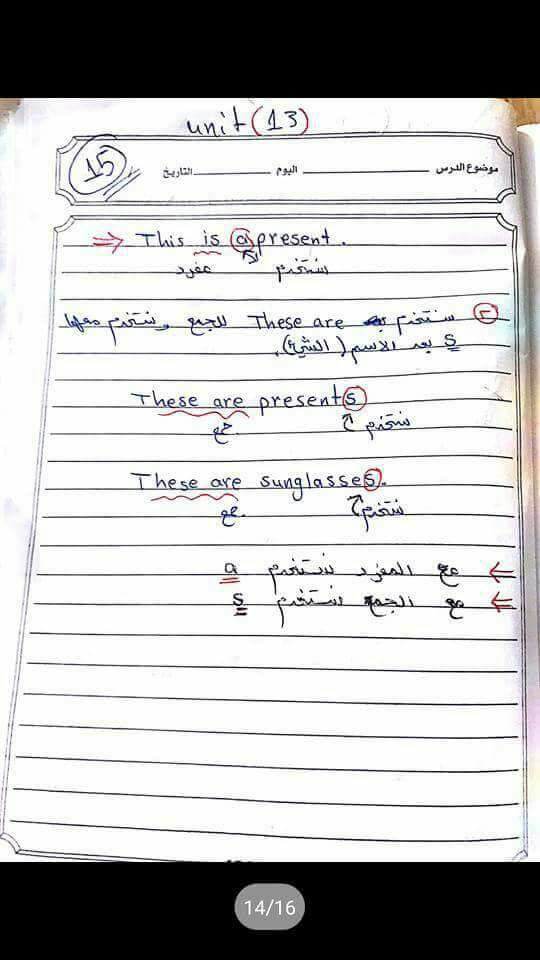 unit (13)
15
موضوع الدرس اليوم التاريخ
⇒ This is a present.
مفرد نستخدم
٢ نستخدم These are للجمع ونستخدم معها
s بعد الاسم (الشيئ).
These are presents
جمع نستخدم
These are sunglasses.
جمع نستخدم
← مع المفرد نستخدم a
← مع الجمع نستخدم s
14/16